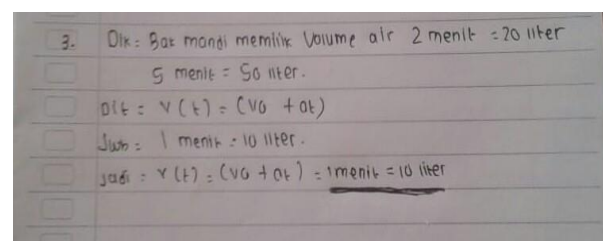 3. Dik = Bak mandi memilik Volume air 2 menit = 20 liter
5 menit = 50 liter.
Dit = V(t) = (V0 + at)
Jwb = 1 menit = 10 liter.
Jadi = V(t) = (V0 + at) = 1 menit = 10 liter